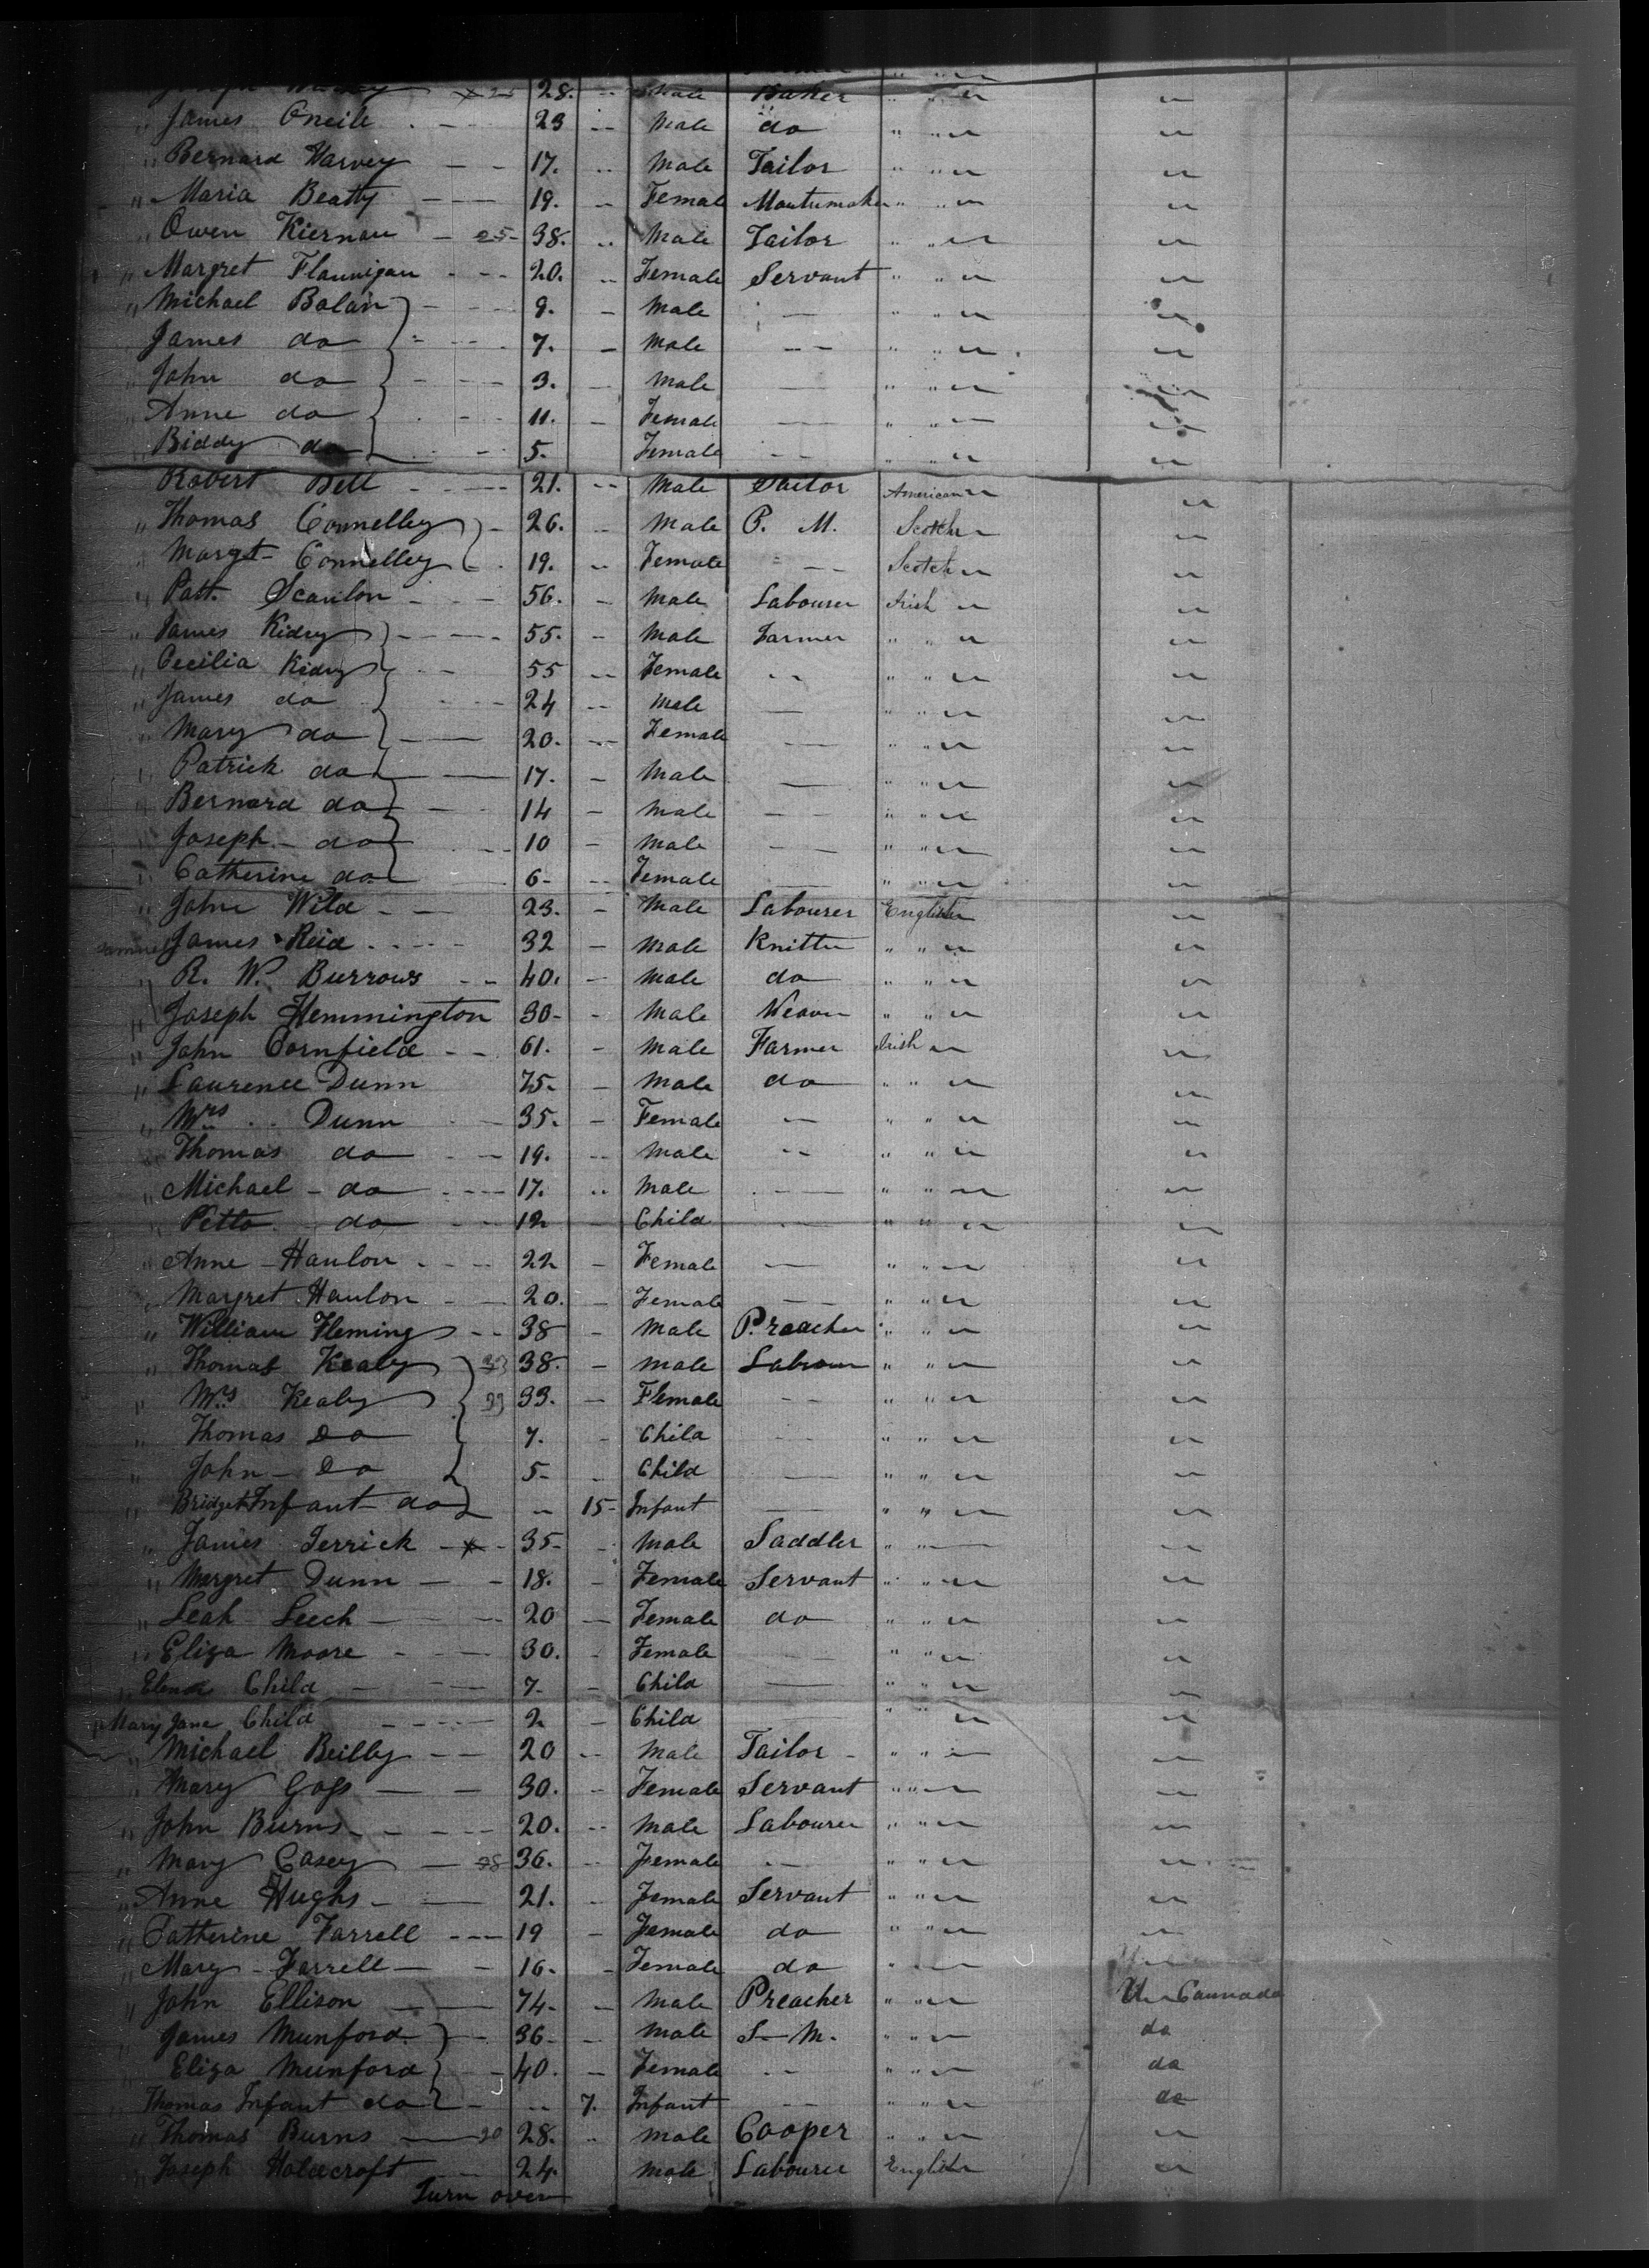 28. Male Baker " " "
" James Oneile 23 Male do " " "
" Bernard Harvey 17. Male Tailor " " "
" Maria Beatty 19. Female Mantumaker " " "
" Owen Kiernan 25 38. Male Tailor " " "
" Margret Flannigan 20. Female Servant " " "
" Michael Bolan 9. Male " " "
James do 7. Male " " "
" John do 3. Male " " "
" Anne do 11. Female " " "
" Biddy do 5. Female " " "
Robert Bell 21. Male Sailor American "
" Thomas Connelley 26. Male P. M. Scotch "
" Margt Connelley 19. Female Scotch "
" Patt. Scanlon 56. Male Labourer Irish "
" James Kidry 55. Male Farmer " " "
" Cecilia Kidry 55 Female " " "
" James do 24 Male " " "
" Mary do 20. Female " " "
" Patrick do 17. Male " " "
" Bernard do 14 Male " " "
" Joseph do 10 Male " " "
" Catherine do 6 Female " " "
" John Wild 23. Male Labourer English
James Reid 32 Male Knitter " " "
" R. W. Burrows 40. Male do " " "
" Joseph Hemmington 30 Male Weaver " " "
" John Cornfield 61. Male Farmer Irish "
" Laurence Dunn 75. Male do " " "
" Mrs Dunn 35. Female " " "
" Thomas do 19. Male " " "
" Michael do 17. Male " " "
" do 12 Child " " "
" Anne Hanlon 22 Female " " "
" Margret Hanlon 20. Female " " "
" William Fleming 38 Male Preacher " " "
" Thomas Kealy 33 38. Male Labrour " " "
" Mrs Kealy 33 33. Female " " "
" Thomas Do 7. Child " " "
" John Do 5 Child " " "
" Bridget Infant do 15 Infant " " "
" James Terrick 35 Male Saddler " "
" Margret Dunn 18. Female Servant " " "
" Leah Leech 20 Female do " " "
" Eliza Moore 30. Female " " "
" Child 7 Child " " "
" Mary Jane Child 2 Child " " "
" Michael Beilly 20 Male Tailor " " "
" Mary Gogs 30. Female Servant " " "
" John Burns 20. Male Labourer " " "
" Mary Casey 28 36. Female " " "
" Anne Hughs 21. Female Servant " " "
" Catherine Farrell 19 Female do " " "
" Mary Farrell 16. Female do " " "
" John Ellison 74. Male Preacher " " " Cannada
" James Munford 36 Male S M. " " " do
" Eliza Munford 40. Female " " " do
" Thomas Infant do 7. Infant " " " do
" Thomas Burns 20 28. Male Cooper " " "
" Joseph Holdcroft 24. Male Labourer English
Turn over